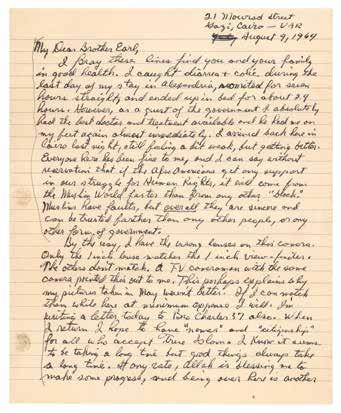 21 Mourad Street
Giza, Cairo - UAR
August 9, 1964
My Dear Brother Earl,
I pray these lines find you and your family
in good health. I caught diarrea & colic during the
last day of my stay in Alexandria, vomited for seven
hours straight, and ended up in bed for about 24
hours. However, as a guest of the government I absolutely
had the best doctors and treatment available and he had me on
my feet again almost immediately. I arrived back here in
Cairo last night, still feeling a bit weak, but getting better.
Everyone here has been fine to me, and I can say without
reservation that if the Afro Americans get any support
in our struggle for Human Rights, it will come from
the Muslim World faster than from any other "bloc."
Muslims have faults, but overall they are sincere and
can be trusted farther than any other people, or any
other form of government.
By the way, I have the wrong lenses on this camera.
Only the 1 inch lense matches the 1 inch view-finder.
The others don't match. A TV cameraman with the same
camera pointed this out to me. This perhaps explains why
my pictures taken in May weren't better. If I can match
them while here at minimum expense I will. I'm
writing a letter today to Bro Charles 37 also. When
I return I hope to have and
for all who accept True Islam. I know it seems
to be taking a long time but good things always take
a long time. At any rate, Allah is blessing me to
make some progress, and being over here is another